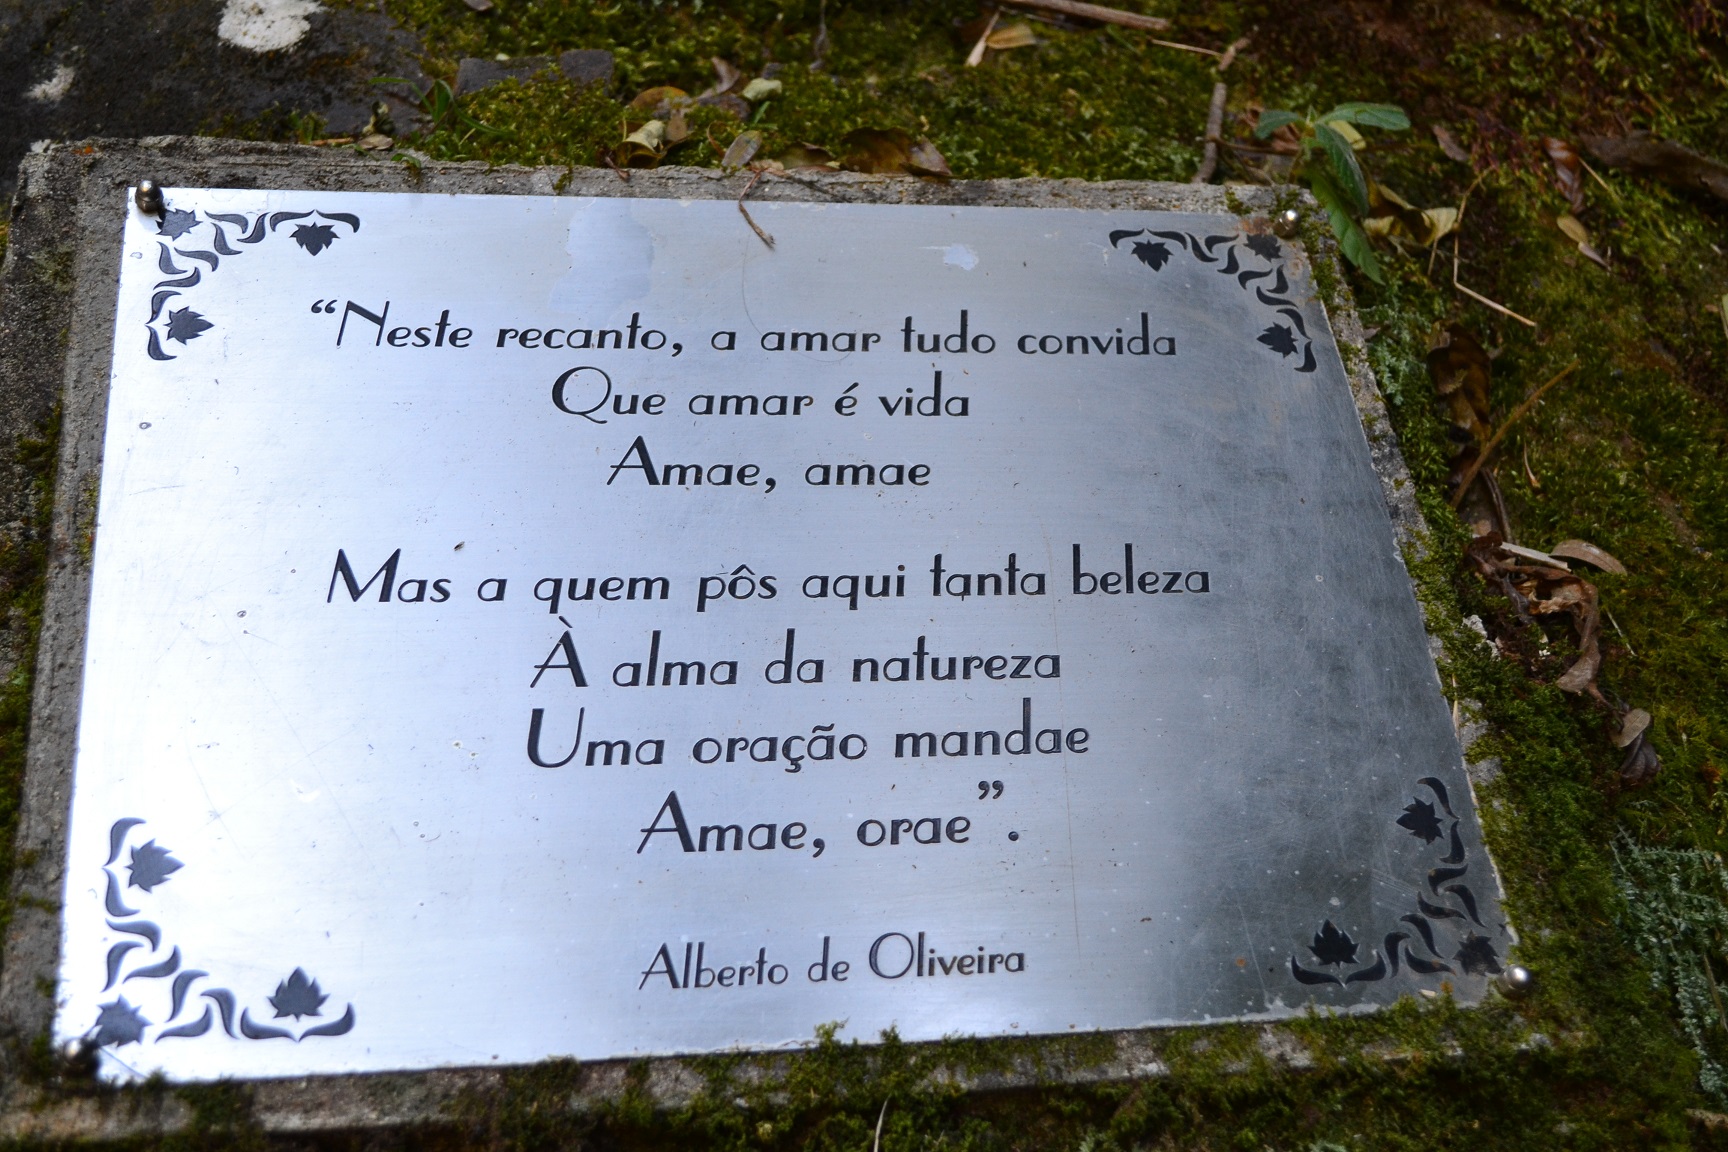 “Neste recanto, a amar tudo convida
Que amar é vida
Amae, amae
Mas a quem pôs aqui tanta beleza
À alma da natureza
Uma oração mandae
Amae, orae”.
Alberto de Oliveira